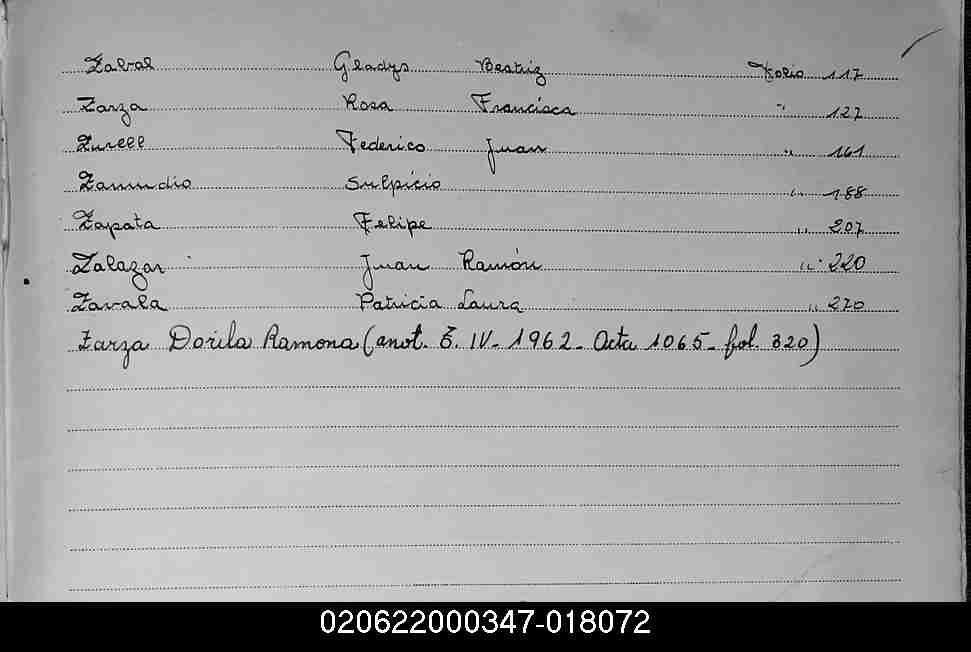 Zabal Gladys Beatriz Folio 117
Zarza Rosa Francisca " 127
Zurell Federico Juan " 161
Zamudio Sulpicio " 188
Zapata Felipe " 207
Zalazar Juan Ramón " 220
Zavala Patricia Laura " 270
Zarza Dorila Ramona (anot. T. IV- 1962- Acta 1065- fol. 320)
020622000347-018072